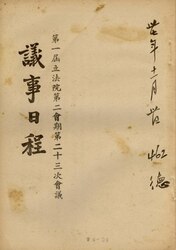 年十二月
462
德
第一屆立法院第二會期第二十三次會議
議事日程